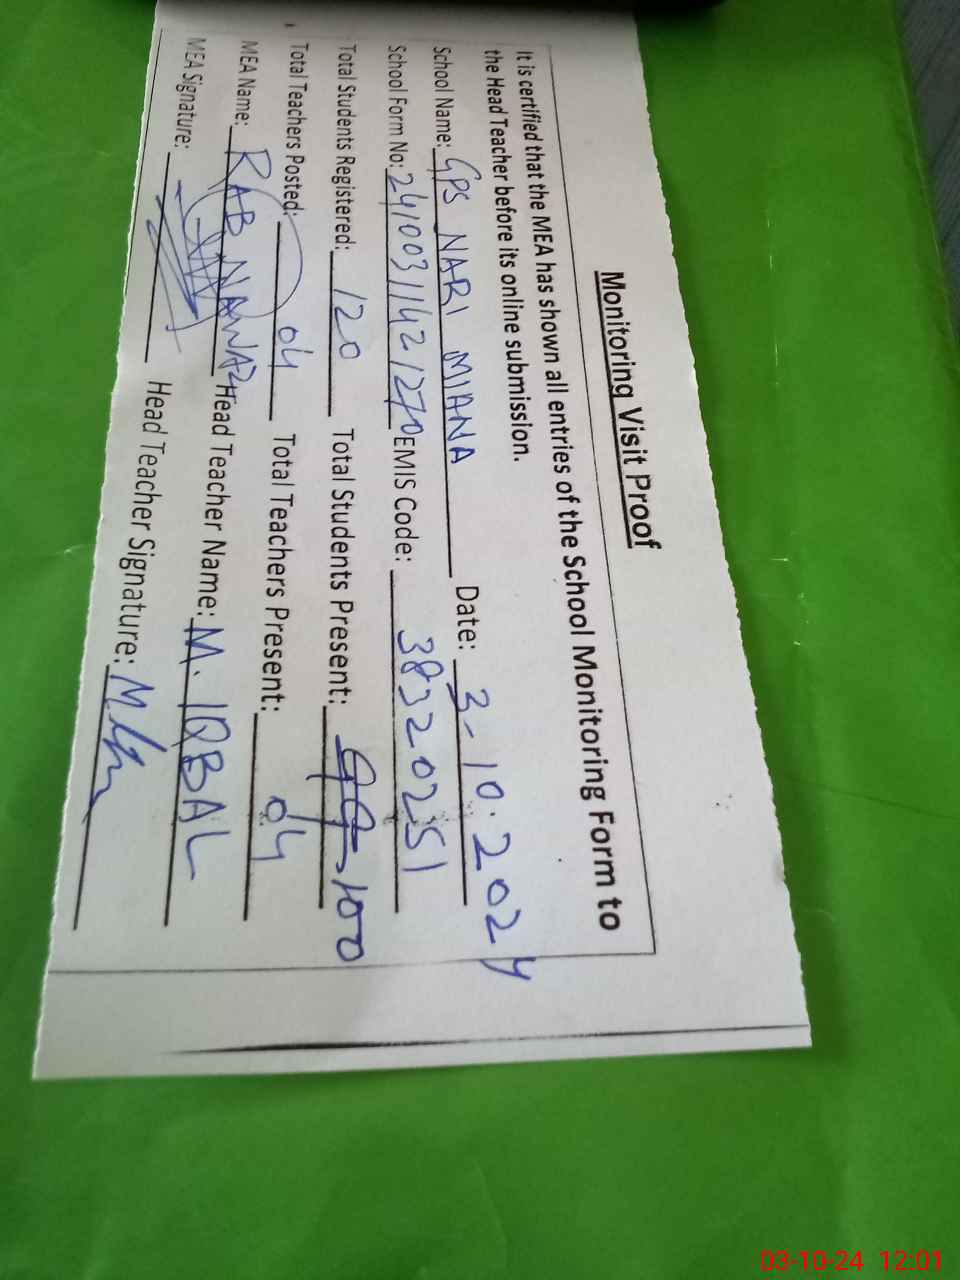 Monitoring Visit Proof
It is certified that the MEA has shown all entries of the School Monitoring Form to
the Head Teacher before its online submission.
School Name: GPS NARI MIANA Date: 3-10.2024
School Form No: 24100311421270 EMIS Code: 38320251
Total Students Registered: 120 Total Students Present: 99 100
Total Teachers Posted: 04 Total Teachers Present: 04
MEA Name: RAB NAWAZ Head Teacher Name: M. IQBAL
MEA Signature: Head Teacher Signature:
03-10-24 12:01